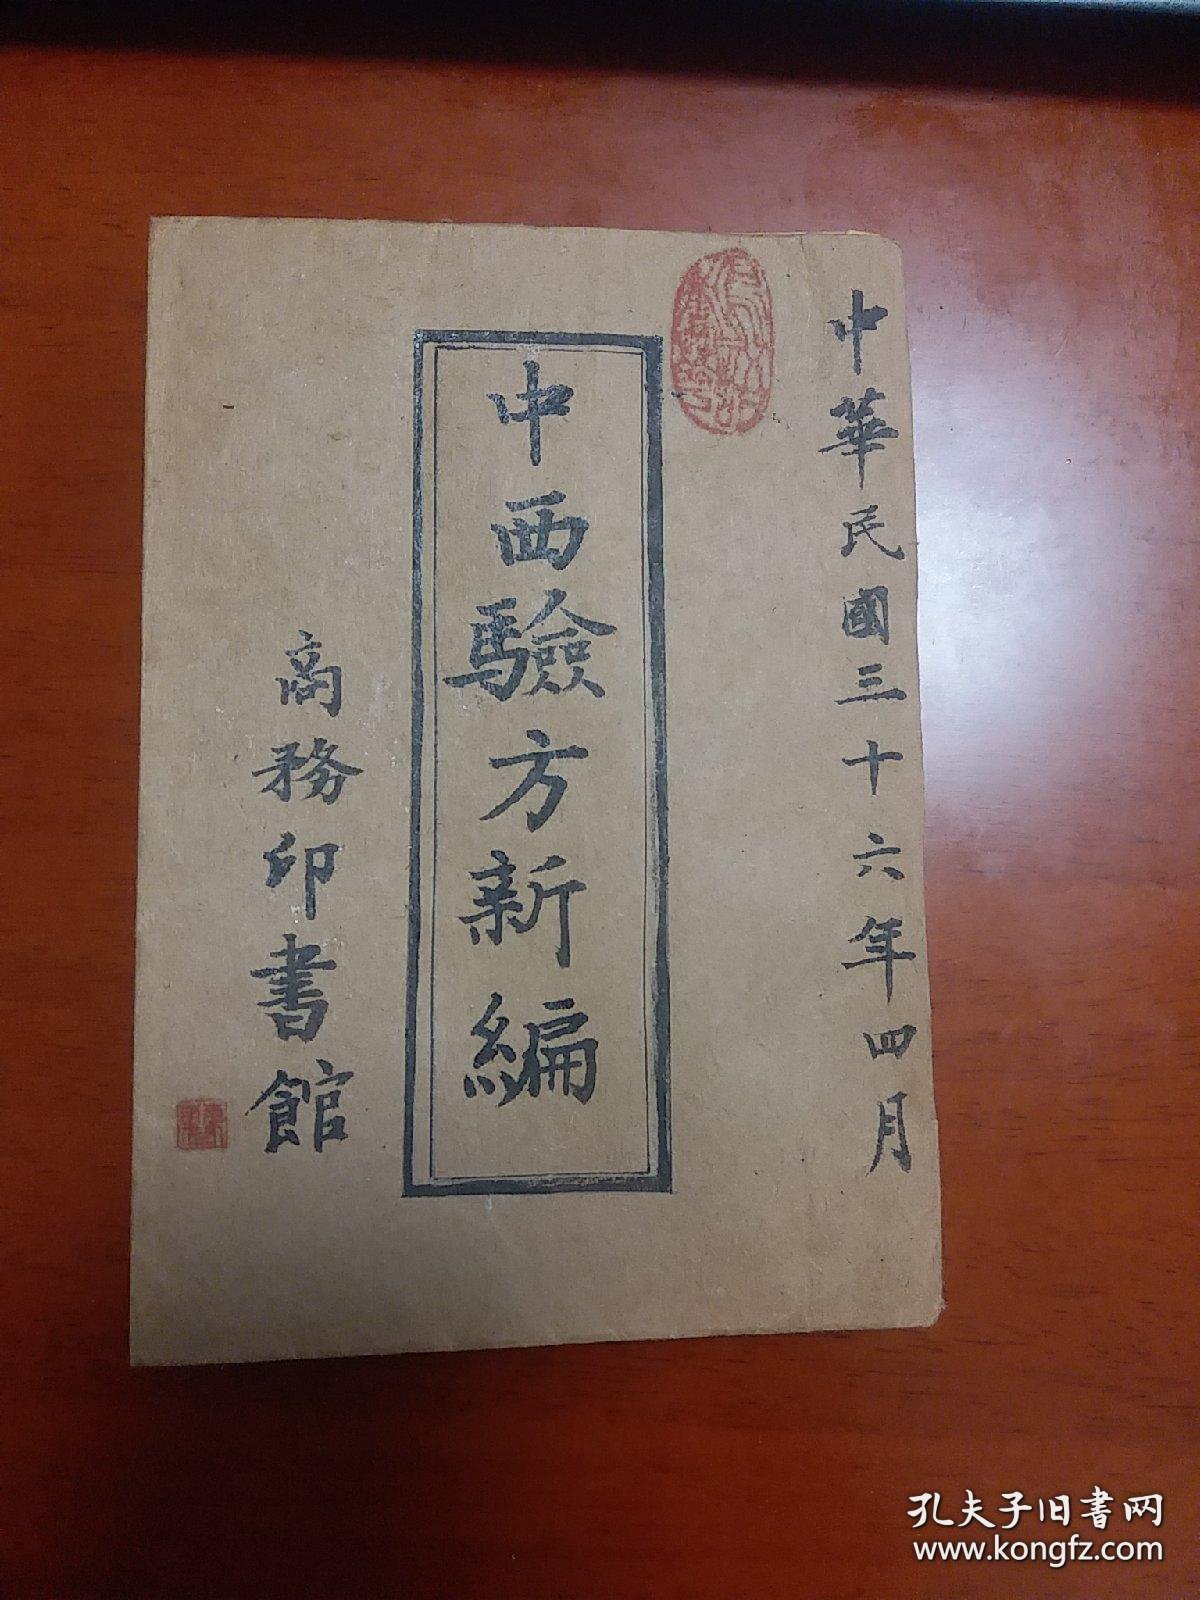 中華民國三十六年四月
中西驗方新編
商務印書館
孔夫子旧書网
www.kongfz.com